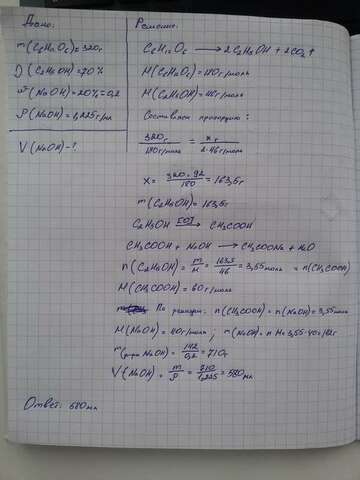 Дано:
m(C6H12O6)=320г
η(C2H5OH)=70%
ω(NaOH)=20%=0,2
ρ(NaOH)=1,225г/мл
V(NaOH)-?
Решение:
C6H12O6 → 2C2H5OH + 2CO2↑
M(C6H12O6)=180г/моль
M(C2H5OH)=46г/моль
Составляем пропорцию:
320г/180г/моль = xг/2·46г/моль
x= 320·92/180 =163,5г
m(C2H5OH)=163,5г
C2H5OH [O]→ CH3COOH
CH3COOH + NaOH → CH3COONa + H2O
n(C2H5OH)= m/M = 163,5/46 = 3,55моль = n(CH3COOH)
M(CH3COOH)=60г/моль
По реакции: n(CH3COOH)=n(NaOH)=3,55моль
M(NaOH)=40г/моль; m(NaOH)=n·M=3,55·40=142г
m(р-ра NaOH)= 142/0,2 =710г
V(NaOH)= m/ρ = 710/1,225 =580мл
Ответ: 580мл